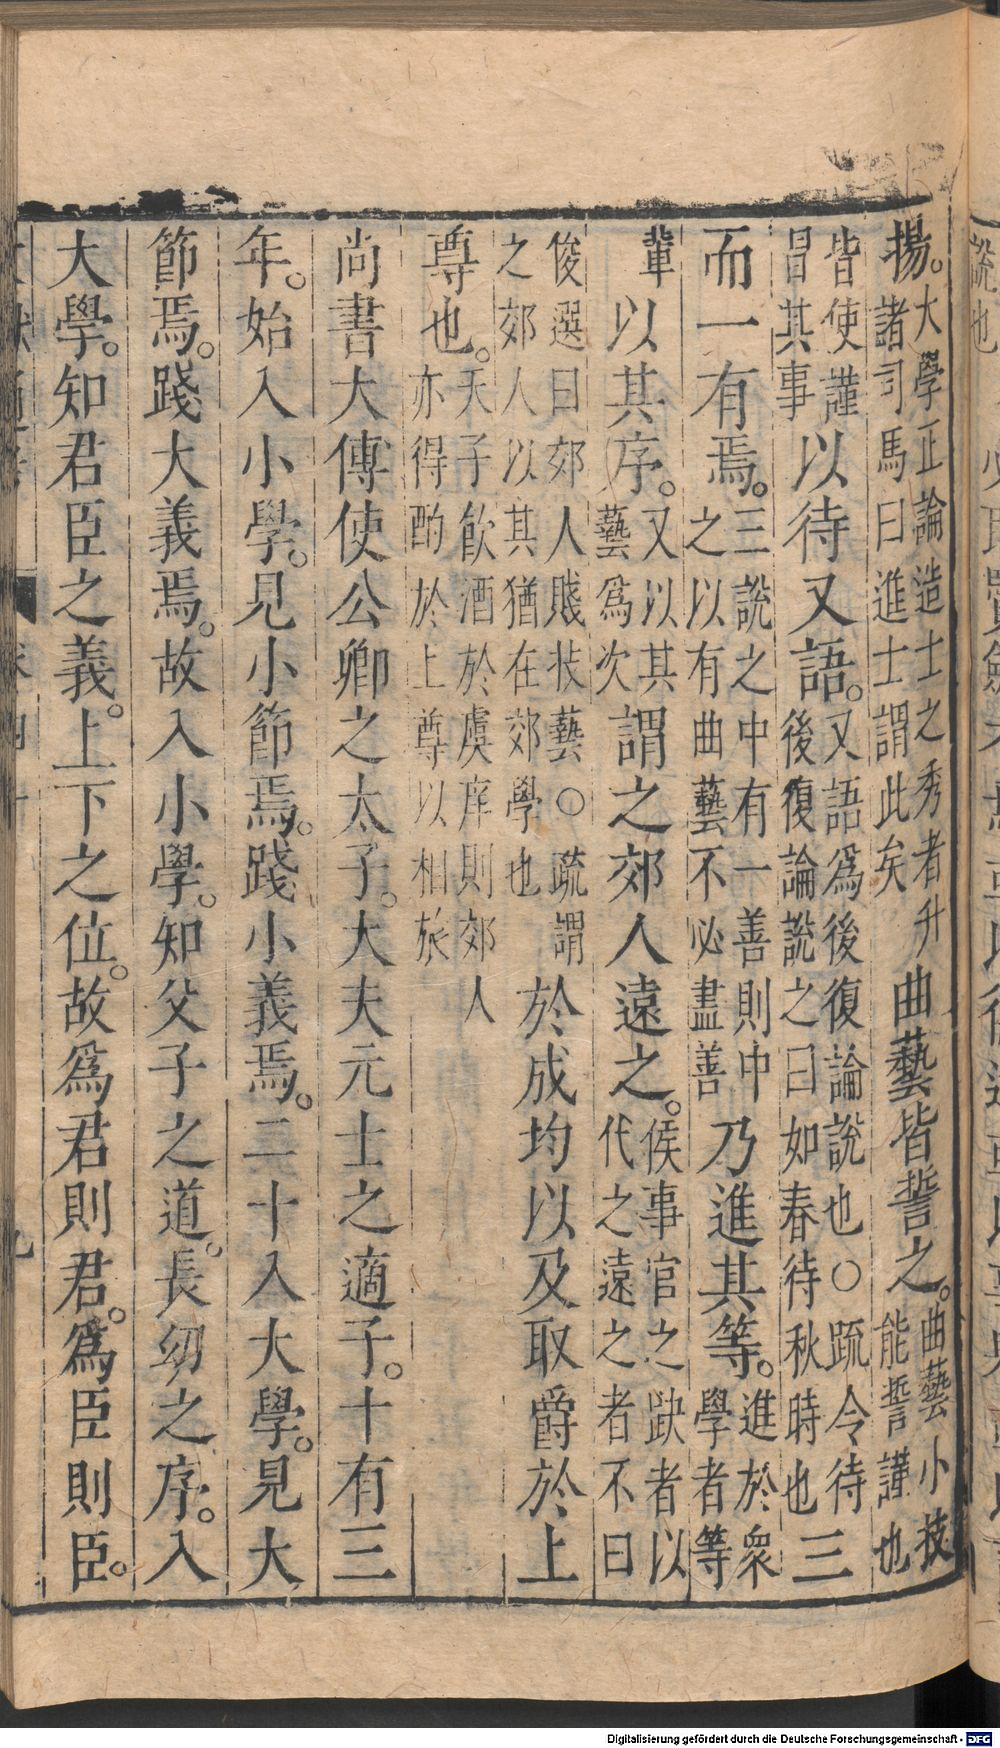 說也
揚。大學正論造士之秀者升諸司馬曰進士謂此矣曲藝皆誓之。曲藝小技能誓謹也
皆使謹冒其事以待又語。又語爲後復論說也○疏令待後復論說之曰如春待秋時也三
而一有焉。三說之中有一善則中之以有曲藝不必盡善乃進其等。進於衆學者等
輩以其序。又以其藝爲次謂之郊人遠之。俟事官之缺者以代之遠之者不曰
俊選曰郊人賤技藝○疏謂之郊人以其猶在郊學也於成均以及取爵於上
尊也。天子飲酒於虞庠則郊人亦得酌於上尊以相旅
尚書大傳使公卿之太子。大夫元士之適子。十有三
年。始入小學。見小節焉。踐小義焉。二十入大學。見大
節焉。踐大義焉。故入小學。知父子之道。長幼之序。入
大學。知君臣之義。上下之位。故爲君則君。爲臣則臣。
Digitalisierung gefördert durch die Deutsche Forschungsgemeinschaft - DFG